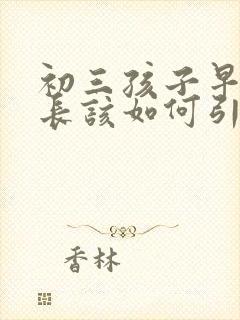 初三孩子早
长该如何引
香林